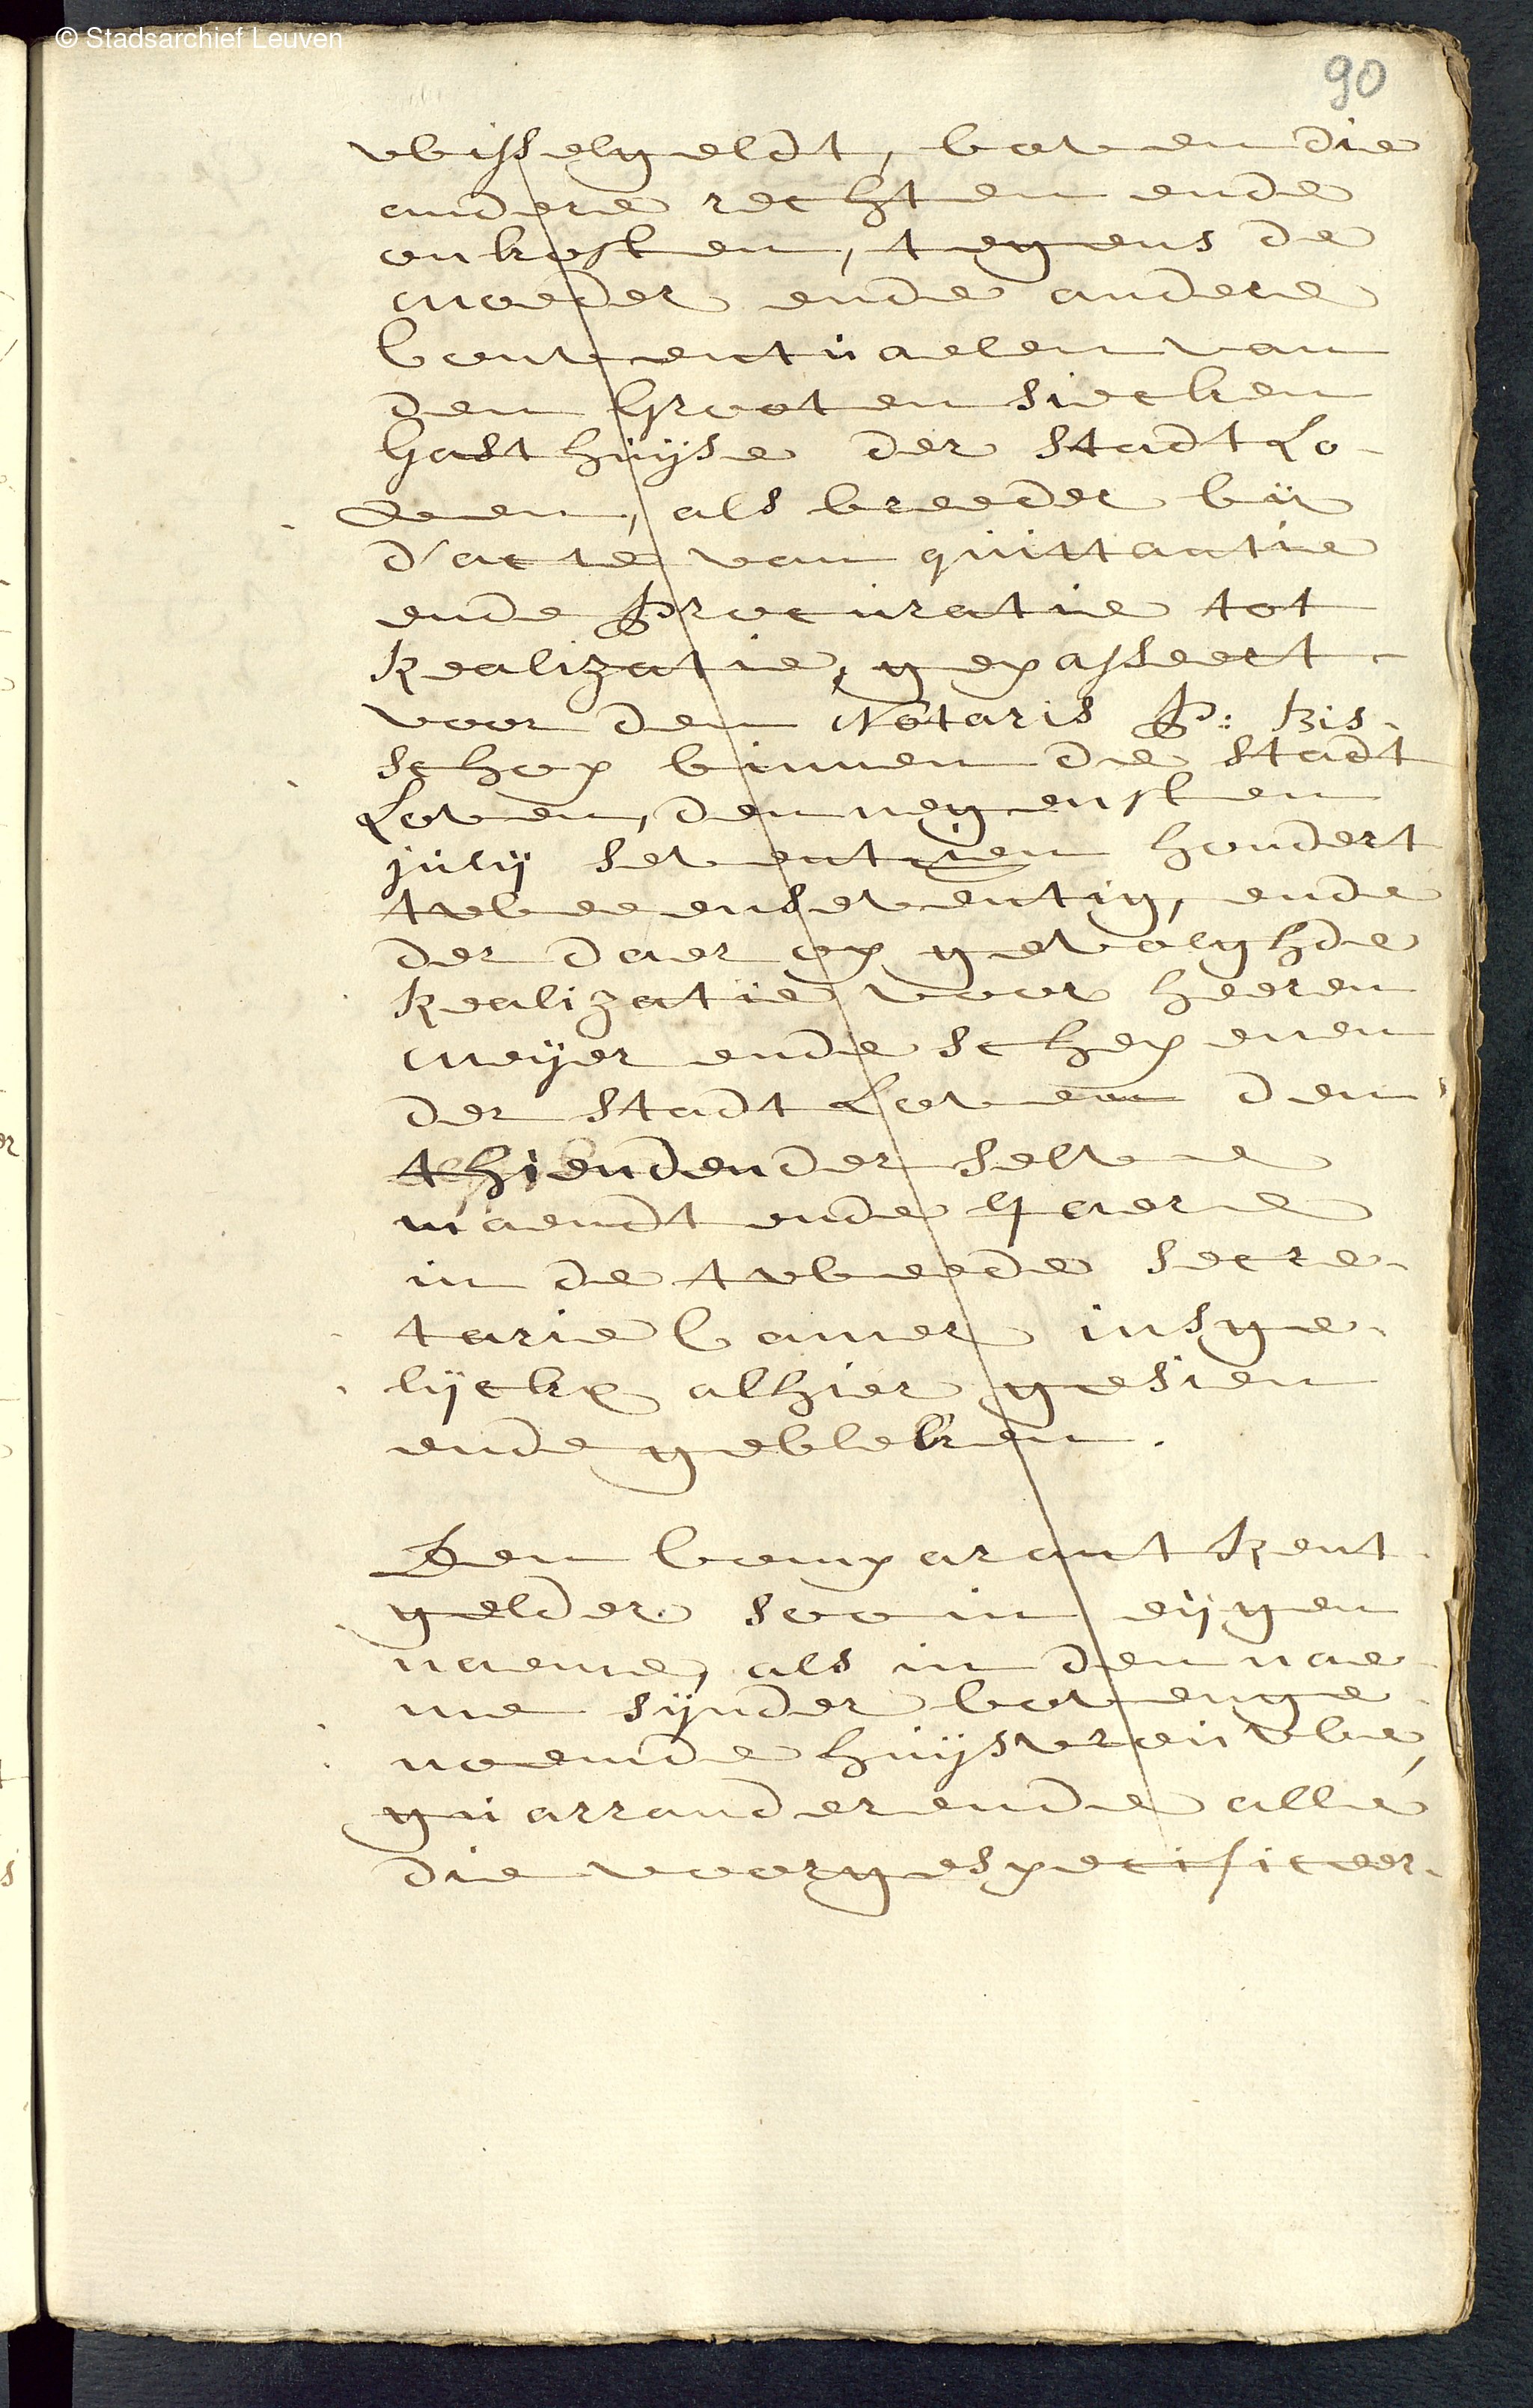 © Stadsarchief Leuven
90
wisselgeldt, boven die
andere rechten ende
onkosten, tegens de
moeder ende andere
Conventuaelen van
den Grooten siecken
Gasthuijse der stadt Lo-
venen, als breeder bij
d'acte van quittantie
ende Procuratie tot
Realizatie, gepasseert
voor den Notaris P: Bis-
schop binnen die stadt
Loven, den negensten
julij seventhien hondert
tweeenseventig, ende
der daer op gevolghde
Realizatie voor heeren
meijer ende schepenen
der stadt Loven den
thienden der selve
maendt ende Jaere
in de tweede secre-
tarie Camer insge-
lijckx alhier gesien
ende gebleken.
Den Comparant Rent-
gelder soo in eijgen
naeme, als in den nae-
me sijnder bovenge-
noemde huijsvrouwe,
guarranderende alle
die voorgespecificeer-